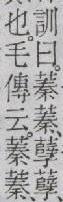 訓曰。蓁蓁、孽孽、
也。毛傳云。蓁蓁、